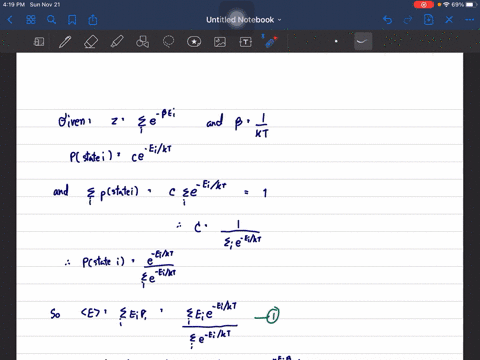 4:19 PM Sun Nov 21
69%
Untitled Notebook
Given, z = Σ_i e^{-βEi} and β = 1/KT
P(state i) = ce^{-Ei/kT}
and Σ_i p(state i) = c Σ_i e^{-Ei/kT} = 1
∴ C = 1/Σ_i e^{-Ei/kT}
∴ P(state i) = e^{-Ei/kT}/Σ_i e^{-Ei/kT}
So <E> = Σ_i Ei Pi = Σ_i Ei e^{-Ei/kT}/Σ_i e^{-Ei/kT} — ①